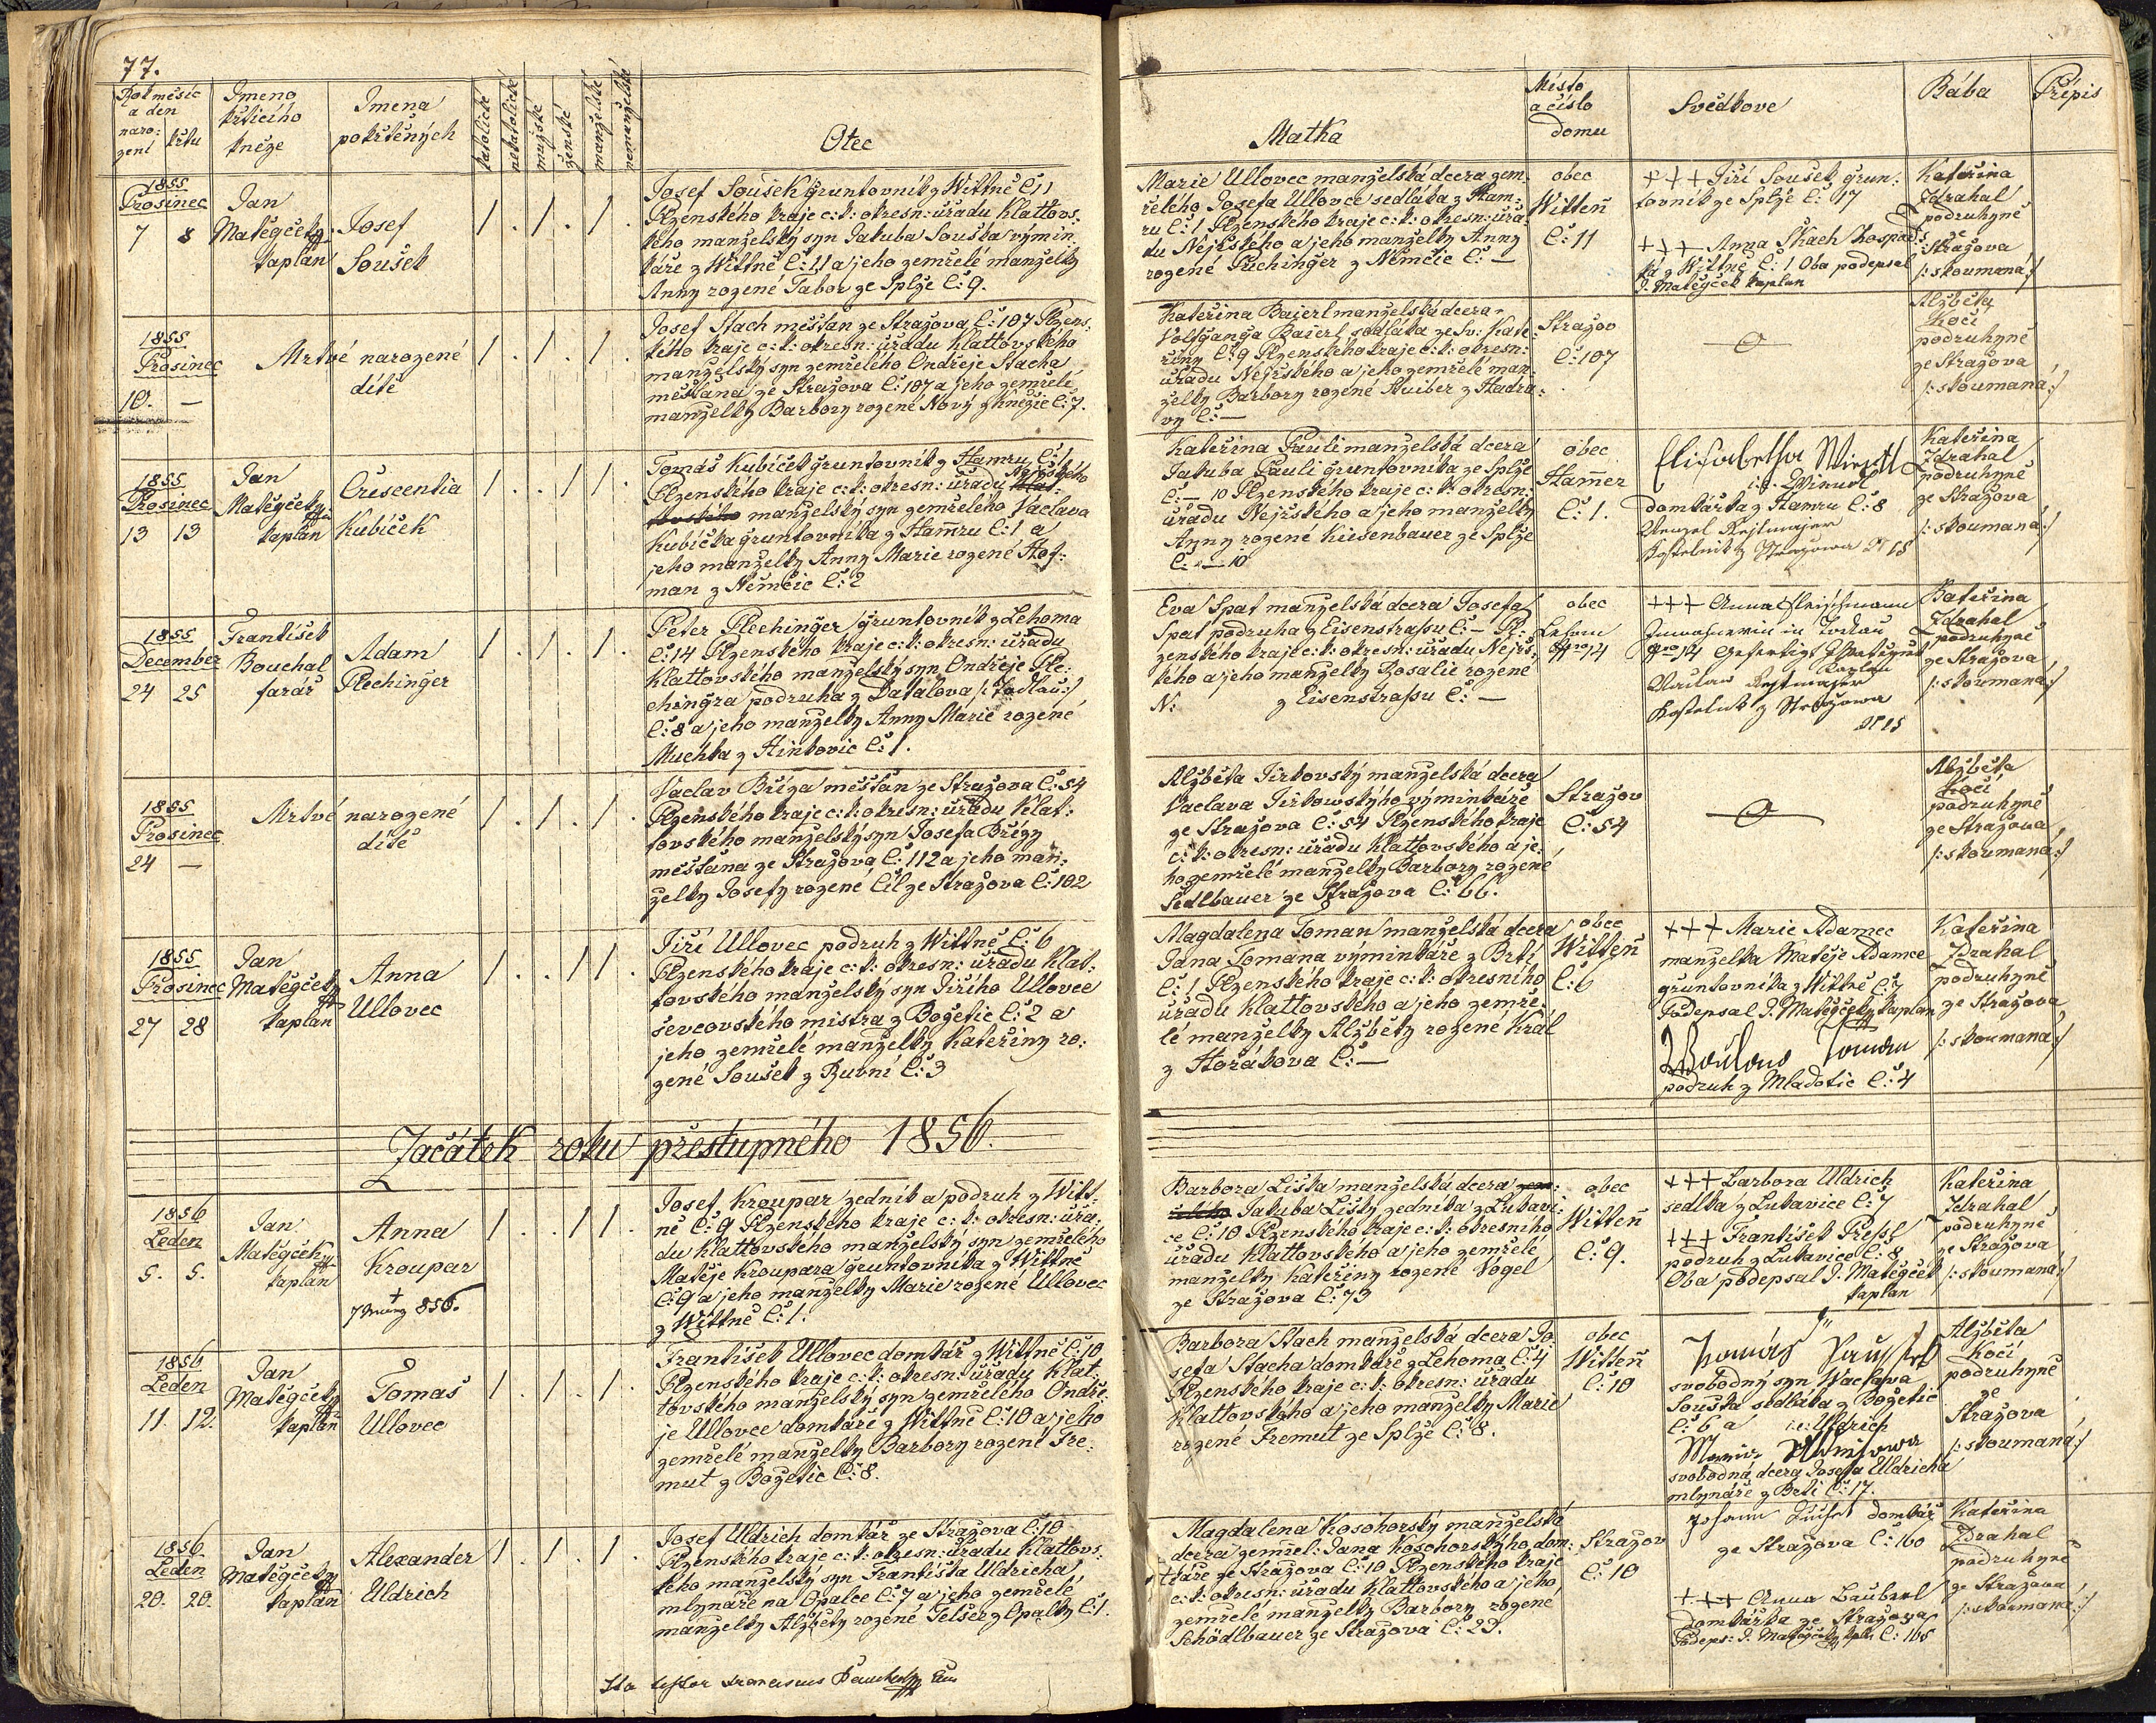 77.
Rok měsíc a den
naro: zení
křtu
Jmeno křticího kněze
Jmena pokřtěných
katolické
nekatolické
mužské
ženské
manželské
nemanželské
Otec
Matka
Místo a číslo domu
Svědkove
Bába
Přípis
1855
Prosinec
7 8
Jan
Matěgček
kaplan
Josef
Soušek
Josef Soušek gruntovník z Wittně Č: 11
Plzenského kraje c: k: okresn: úřadu Klattovs:
kého manželský syn Jakuba Souška výmin:
káře z Wittně Č: 11 a jeho zemřelé manželky
Anny rozené Tabor ze Splže Č: 9.
Marie Ullovec manželská dcera zem:
řelého Josefa Ullovce sedláka z Ham:
ru Č: 1 Plzenského kraje c: k: okresn: úřa:
du Nejrského a jeho manželky Anny
rozené Plechinger z Němčic Č: —
obec
Witteň
Č: 11
+++ Jiří Soušek grun:
tovník ze Splže Č: 17
+++ Anna Skach hospod:
ká z Wittně Č: 1 Oba podepsal
J. Matěgček kaplan
Kateřina
Zdrahal
podruhyně
ze
Stražova
/: skoumaná :/
1855
Prosinec
10. —
Mrtvé narozené
dítě
Josef Stach měšťan ze Stražova Č: 107 Plzens:
kého kraje c: k: okresn: úřadu Klattovského
manželský syn zemřelého Ondřeje Stacha
měšťana ze Stražova Č: 107 a jeho zemřelé
manželky Barbory rozené Nový z Kněžic Č: 7.
Kateřina Baierl manželská dcera
Volfganga Baierl sedláka ze Sv: Kate:
řiny Č: 9 Plzenského kraje c: k: okresn:
úřadu Nejrského a jeho zemřelé man:
želky Barbory rozené Stuiber z Hadra:
vy Č: —
Stražov
Č: 107
Alžběta
Kočí
podruhyně
ze Stražova
/: skoumaná :/
1855
Prosinec
13 13
Jan
Matěgček
kaplan
Crescentia
Kubíček
Tomáš Kubíček gruntovník z Hamru Č: 1
Plzenského kraje c: k: okresn: úřadu Nejrského
manželský syn zemřelého Václava
Kubíčka gruntovníka z Hamru Č: 1 a
jeho manželky Anny Marie rozené Hof:
man z Němčic Č: 2
Kateřina Pauli manželská dcera
Jakuba Pauli gruntovníka ze Splže
Č: — 10 Plzenského kraje c: k: okresn:
úřadu Nejrského a jeho manželky
Anny rozené Kiesenbauer ze Splže
Č: — 10
obec
Hamer
Č: 1.
Elisabetha
domkářka z Hamru Č: 8
Wenzel Rejtmajer
Kostelnik z Stražowa N 15
Kateřina
Zdrahal
podruhyně
ze Stražova
/: skoumaná :/
1855
December
24 25
František
Bouchal
farář
Adam
Plechinger
Peter Plechinger gruntovník z Lehoma
Č: 14 Plzenského kraje c: k: okresn: úřadu
Klattovského manželský syn Ondřeje Ple:
chingra podruha z Datálova
Č: 8 a jeho manželky Anny Marie rozené
Muchka z Hinkovic Č: 1.
Eva Spat manželská dcera Josefa
Spat podruha z Eisenstrassu Č: — Pl:
zenského kraje c: k: okresn: úřadu Nejrs:
kého a jeho manželky Rosalie rozené
N: z Eisenstrassu Č: —
obec
Lehom
Nro 14
+++ Anna Fleischmann
Inwohnerin in
Nro 14
Kaplan
Waclaw Rejtmajer
Kostelnik z Stražowa
N 15
Kateřina
Zdrahal
podruhyně
ze Stražova
/: skoumaná :/
1855
Prosinec
24 —
Mrtvé narozené
dítě
Vaclav Bříza měšťan ze Stražova Č: 54
Plzenského kraje c: k: okresn: úřadu Klat:
tovského manželský syn Josefa Břízy
měšťana ze Stražova Č: 112 a jeho man:
želky Josefy rozené Číl ze Stražova Č: 102
Alžběta Jirkovský manželská dcera
Vaclava Jirkowského výminkáře
ze Stražova Č: 54 Plzenského kraje
c: k: okresn: úřadu Klattovského a je:
ho zemřelé manželky Barbory rozené
Sedlbauer ze Stražova Č: 66.
Stražov
Č: 54
Alžběta
Kočí
podruhyně
ze Stražova
/: skoumaná :/
1855
Prosinec
27 28
Jan
Matěgček
kaplan
Anna
Ullovec
Jiří Ullovec podruh z Wittně Č: 6
Plzenského kraje c: k: okresn: úřadu Klat:
tovského manželský syn Jiřího Ullovce
ševcovského mistra z Božetic Č: 2 a
jeho zemřelé manželky Kateřiny ro:
zené Soušek z Rovní Č: 3
Magdalena Toman manželská dcera
Jana Tomana výminkáře z Brtí
Č: 1 Plzenského kraje c: k: okresního
úřadu Klattovského a jeho zemře:
lé manželky Alžběty rozené Král
z Hořákova Č: —
obec
Witteň
Č: 6
+++ Marie Adamec
manželka Matěje Adamce
gruntovníka z Wittně Č: 7
Podepsal J. Matěgček kaplan
Toman
podruh z Mladotic Č: 4
Kateřina
Zdrahal
podruhyně
ze Stražova
/: skoumaná :/
Začátek roku přestupného 1856.
1856
Leden
5. 5.
Jan
Matěgček
kaplan
Anna
Kroupar
+
7 März 856.
Josef Kroupar zedník a podruh z Witt:
ně Č: 9 Plzenského kraje c: k: okresn: úřa:
du Klattovského manželský syn zemřelého
Matěje Kroupara gruntovníka z Wittně
Č: 9 a jeho manželky Marie rozené Ullovec
z Wittně Č: 1.
Barbora Liška manželská dcera
Jakuba Lišky zedníka z Lukavi:
ce Č: 10 Plzenského kraje c: k: okresního
úřadu Klattovského a jeho zemřelé
manželky Kateřiny rozené Vogel
ze Stražova Č: 73
obec
Witteň
Č: 9.
+++ Barbora Uldrich
sedlka z Lukavice Č: 7
+++ František Pressl
podruh z Lukavice Č: 8
Oba podepsal J. Matěgček
kaplan
Kateřina
Zdrahal
podruhyně
ze Stražova
/: skoumaná :/
1856
Leden
11. 12.
Jan
Matěgček
kaplan
Tomaš
Ullovec
František Ullovec domkář z Wittně Č: 10
Plzenského kraje c: k: okresn: úřadu Klat:
tovského manželský syn zemřelého Ondře:
je Ullovce domkáře z Wittně Č: 10 a jeho
zemřelé manželky Barbory rozené Fre:
mut z Božetic Č: 8.
Barbora Stach manželská dcera Jo:
sefa Stacha domkáře z Lehoma Č: 4
Plzenského kraje c: k: okresn: úřadu
Klattovského a jeho manželky Marie
rozené Fremut ze Splže Č: 8.
obec
Witteň
Č: 10
Tomáš
svobodný syn Waclava
Souška sedláka z Božetic
Č: 6 a i. e. Uldrich
svobodná dcera Josefa Uldricha
mlynáře z Brtí Č: 17.
Alžběta
Kočí
podruhyně
ze
Stražova
/: skoumaná :/
1856
Leden
20. 20.
Jan
Matěgček
kaplan
Alexander
Uldrich
Josef Uldrich domkář ze Stražova Č: 10
Plzenského kraje c: k: okresn: úřadu Klattovs:
kého manželský syn Františka Uldricha
mlynáře na Opalce Č: 7 a jeho zemřelé
manželky Alžběty rozené Telšer z Opalky Č: 1.
Magdalena Kosohorský manželská
dcera zemřel: Jana Kosohorskýho dom:
káře ze Stražova Č: 10 Plzenského kraje
c: k: okresn: úřadu Klattovského a jeho
zemřelé manželky Barbory rozené
Schödlbauer ze Stražova Č: 29.
Stražov
Č: 10
Johann domkář
ze Stražova Č: 160
+++ Anna
domkářka ze Stražova
Podeps: J. Matěgček kpl: Č: 165
Kateřina
Zdrahal
podruhyně
ze Stražova
/: skoumaná :/
Ita testor Franciscus